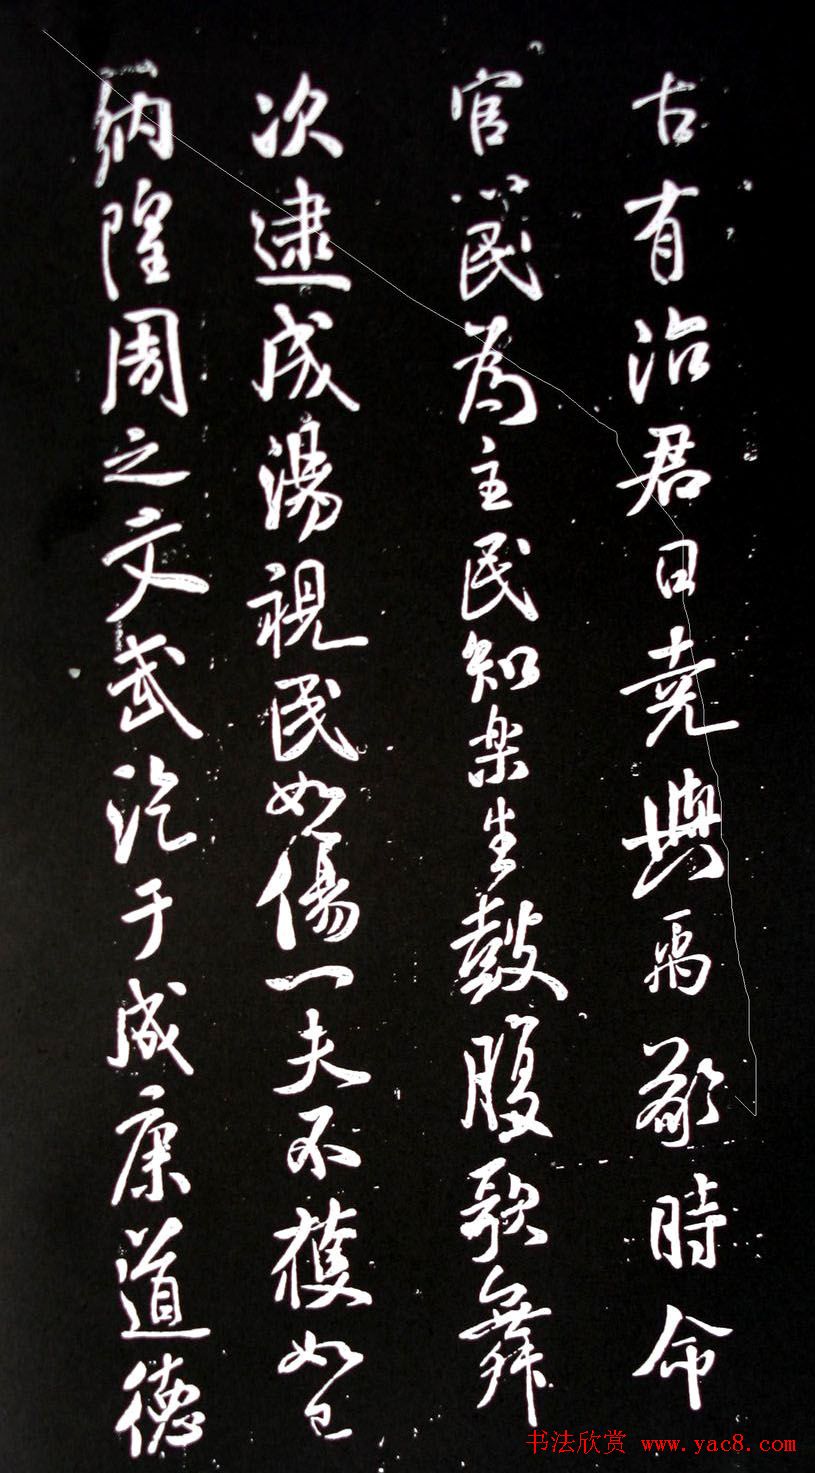 古有治君曰堯與禹敬時命
官以民為主民知楽生鼓腹歌舞
次逮成湯視民如傷一夫不獲如己
納隍周之文武迄于成康道德
书法欣赏 www.yac8.com